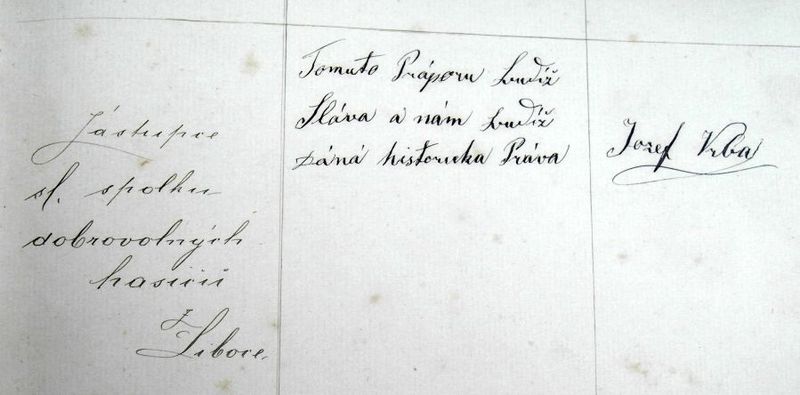 Zástupce
sl. spolku
dobrovolných
hasičů
z
Liboce.
Tomuto Práporu budiž
Sláva a nám budiž
páná historicka Práva
Jozef Vrba